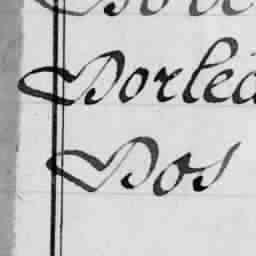 Dorlea
Dos